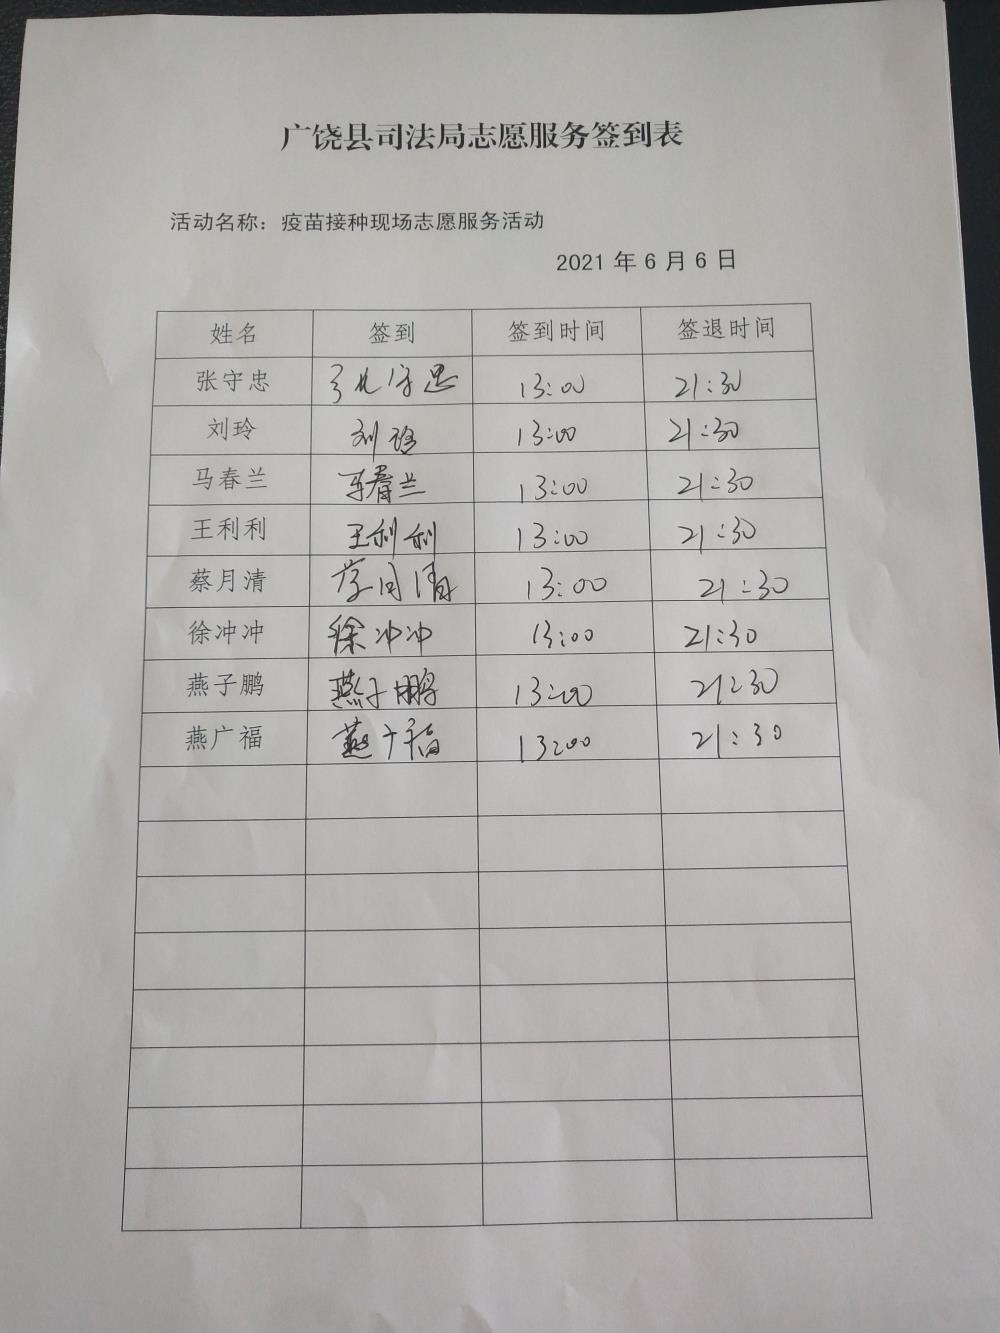 广饶县司法局志愿服务签到表
活动名称：疫苗接种现场志愿服务活动
2021年6月6日
姓名 签到 签到时间 签退时间
张守忠 张守忠 13:00 21:30
刘玲 刘玲 13:00 21:30
马春兰 马春兰 13:00 21:30
王利利 王利利 13:00 21:30
蔡月清 蔡月清 13:00 21:30
徐冲冲 徐冲冲 13:00 21:30
燕子鹏 燕子鹏 13:00 21:30
燕广福 燕广福 13:00 21:30